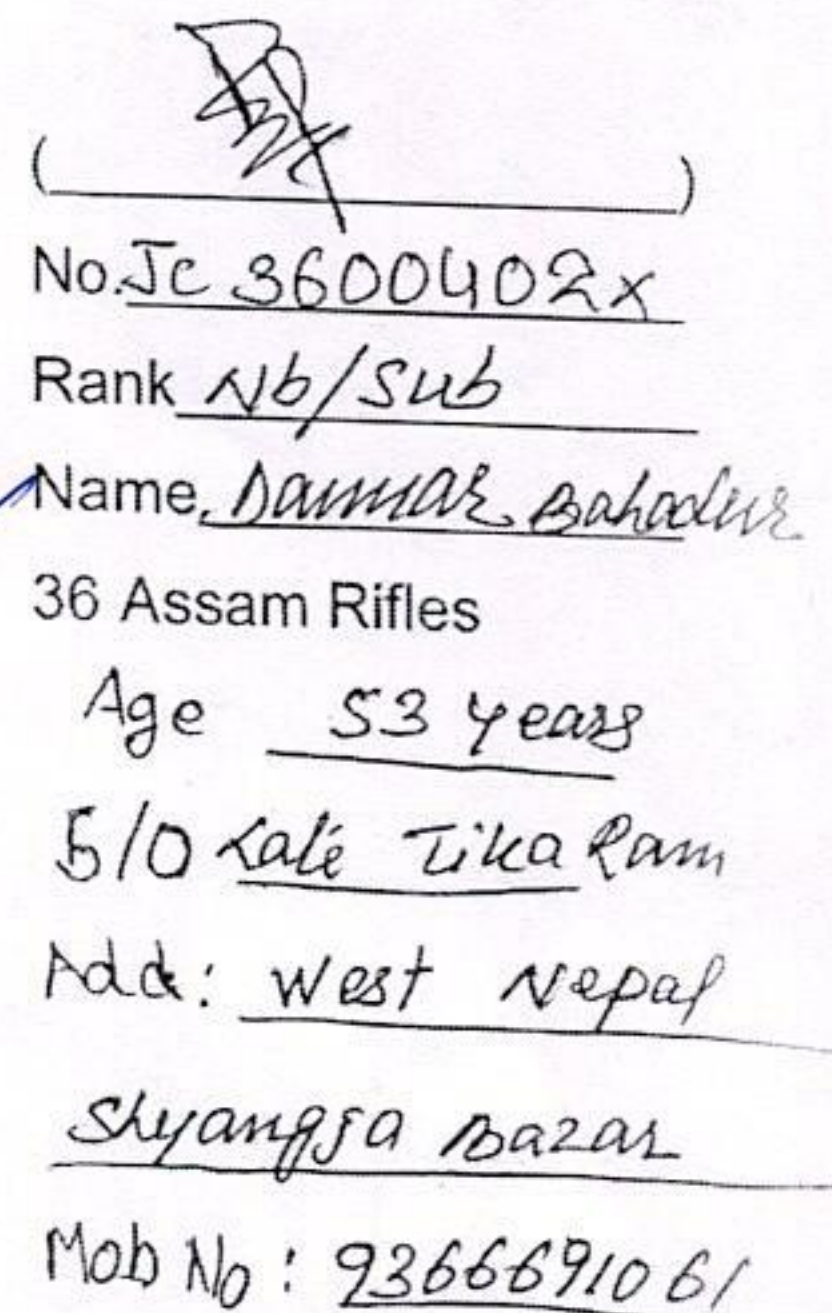 (                    )
No. JC 3600402X
Rank Nb/Sub
Name. Dammar Bahadur
36 Assam Rifles
Age 53 years
S/O Late Tika Ram
Add: West Nepal
Shyangja Bazar
Mob No: 9366691061